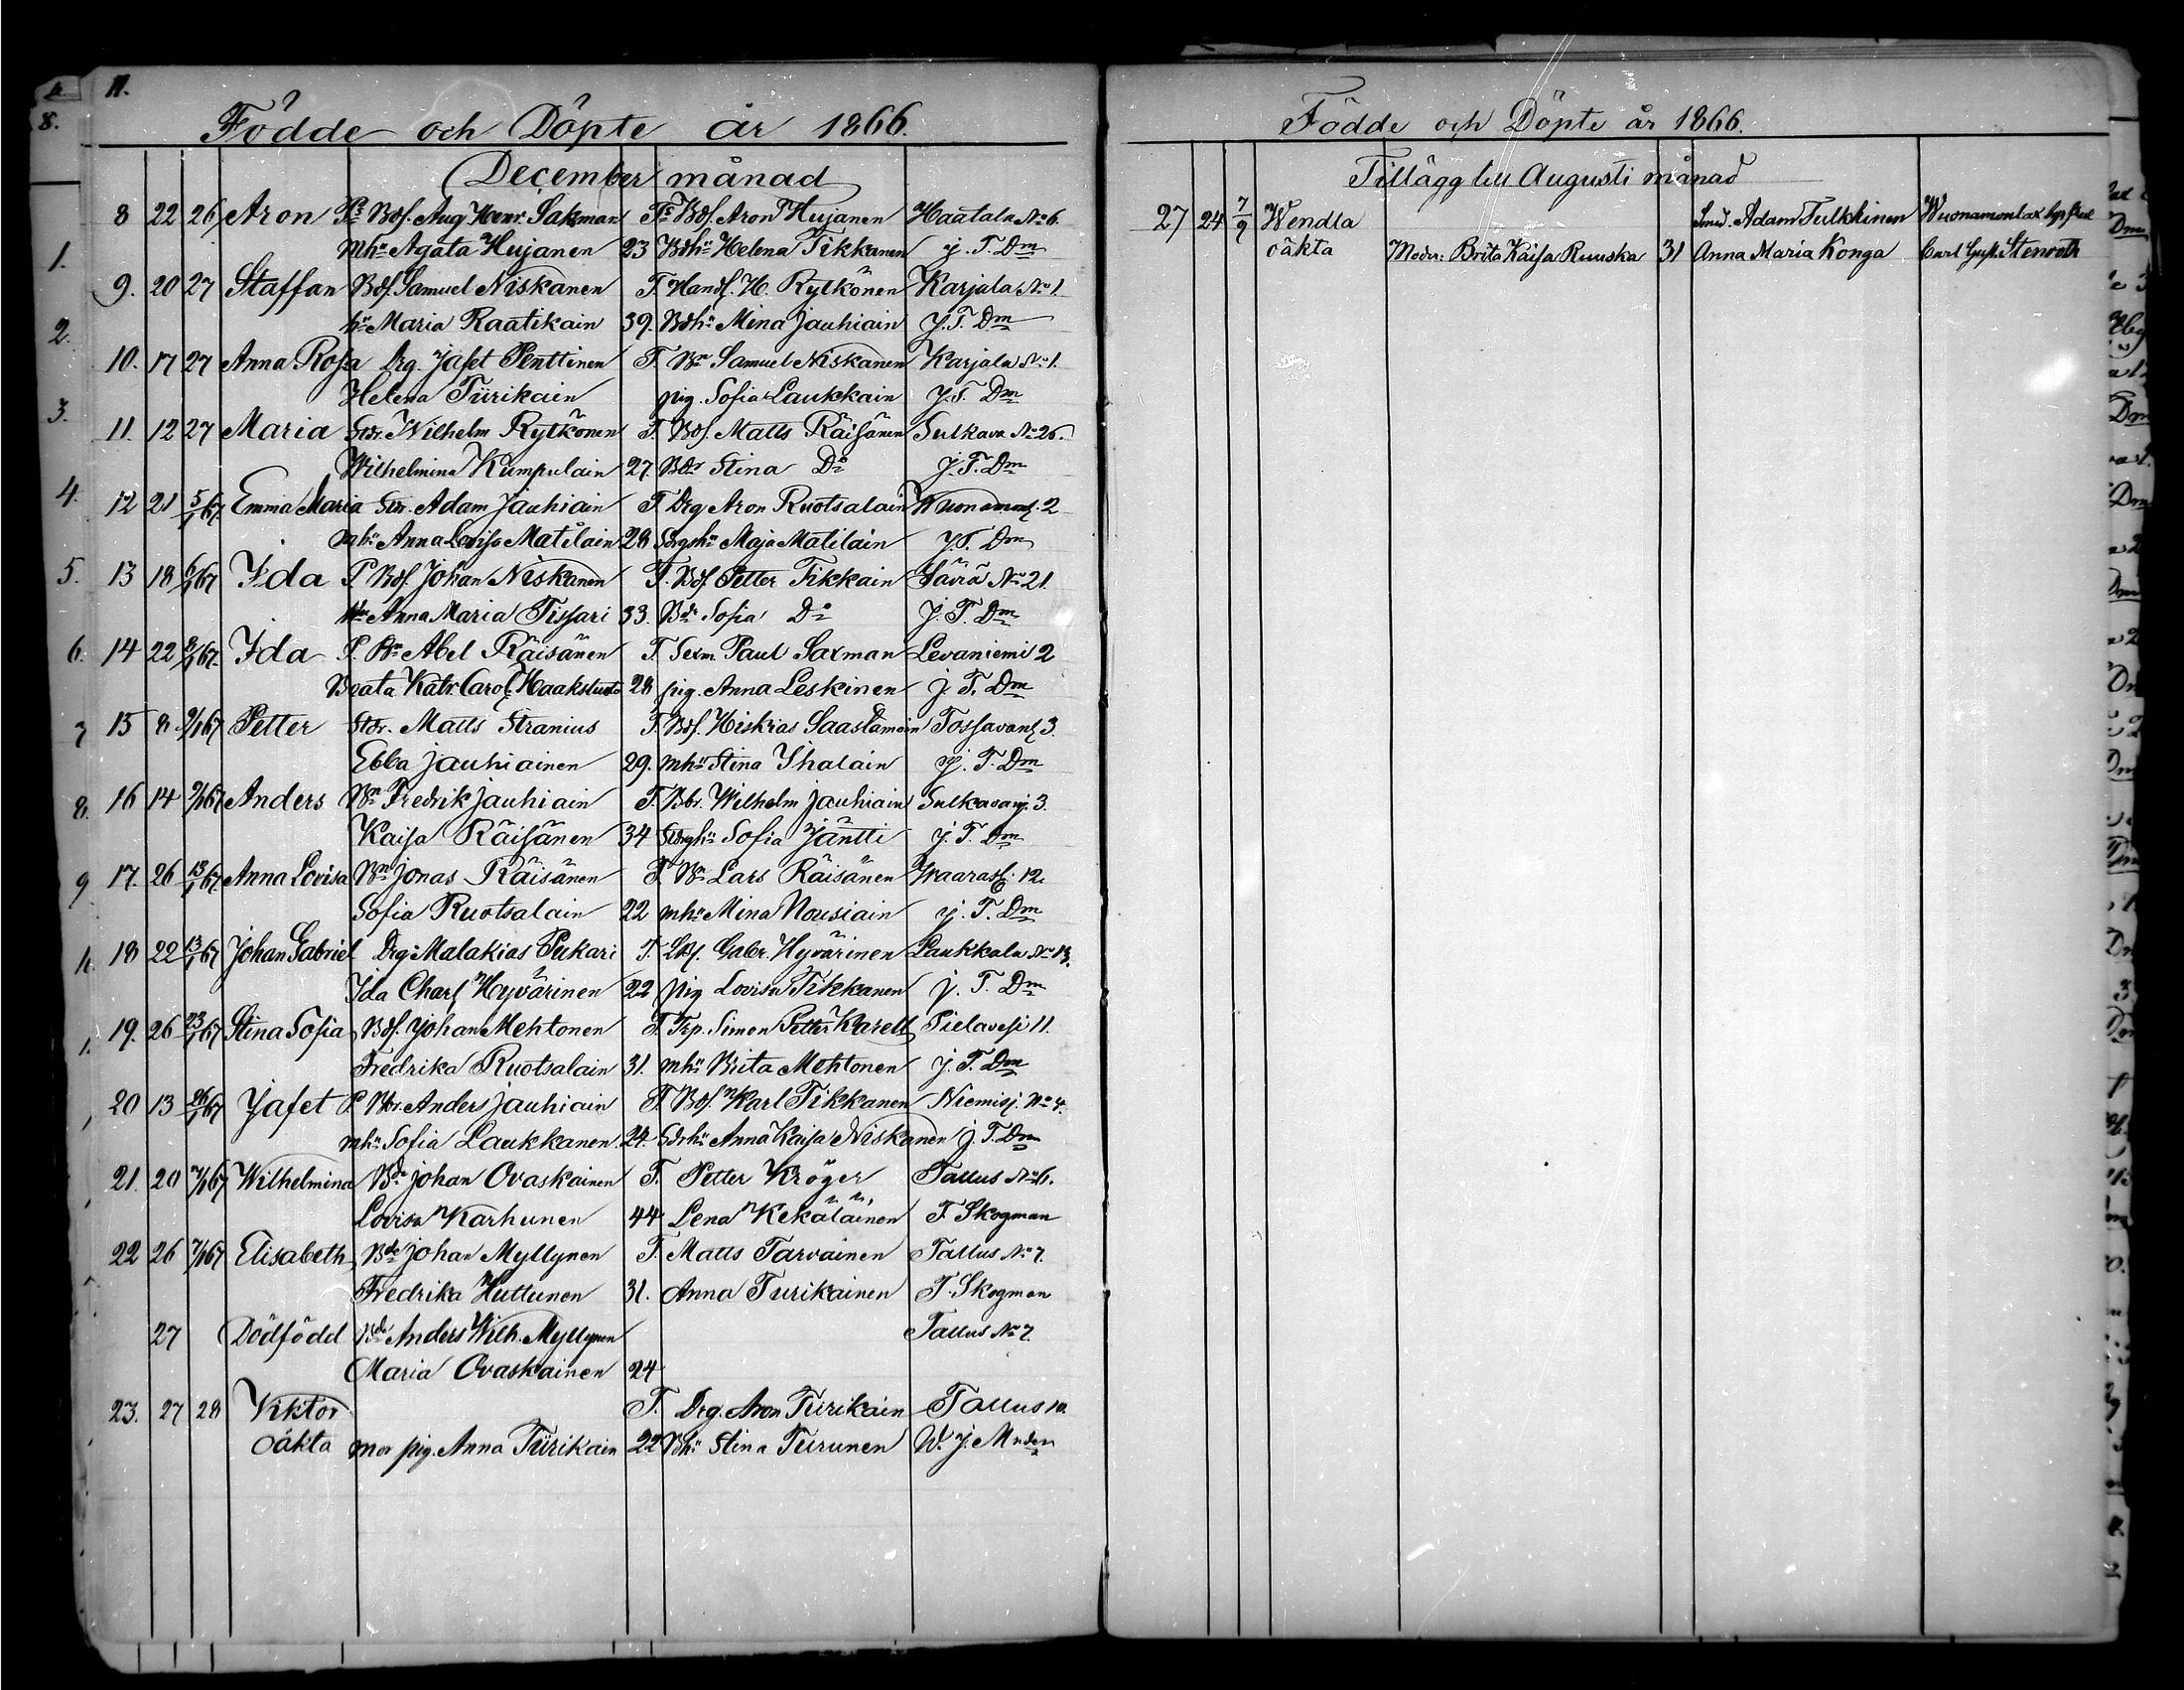 11.
Födde och Döpte år 1866.
December månad
8 22 26 Aron Ps Bdf. Aug Henr. Sakman Ts Bdf. Aron Hujanen Haatala No 6.
Mhu Agata Hujanen 23 Bdhu Helena Tikkanen j. T. Dm
9. 20 27 Staffan Bdf. Samuel Niskanen T. Handf. H. Rytkönen Karjala No 1.
hu Maria Raatikain 39. Bdhu Mina Jauhiain J. T. Dm
10. 17 27 Anna Rosa Drg. Jafet Penttinen T. Bn Samuel Niskanen Karjala No 1.
Helena Tiirikain pig. Sofia Laukkain J. T. Dm
11. 12 27 Maria Stdr. Wilhelm Rytkönen T. Bdf. Matts Räisänen Sulkava No 26.
Wilhelmina Kumpulain 27. Bdr Stina Do J. T. Dm
12 21 5/1 67. Emma Maria Sdr. Adam Jauhiain T. Drg Aron Ruotsalain Wuonamonl. 2
mhu Anna Lovisa Matilain 28 Sdrgshu Maja Matilain J. T. Dm
13 18 6/1 67 Ida P Bdf. Johan Niskanen T. Bdf. Petter Tikkain Säviä No 21.
Anna Maria Tissari 33. Bdr Sofia Do J. T. Dm
14 22 8/1 67. Ida P. Bn Abel Räisänen T Sexm. Paul Saxman Levaniemi 2
Beata Katr. Carol. Haakslusto 28 pig. Anna Leskinen j. T. Dm
15 8 9/1 67 Petter Stdr. Matts Stranius T. Bdf. Hiskias Saastamoin Tossavanl. 3.
Ebba Jauhiainen 29. mhu Stina Ihalain j. T. Dm
16 14 9/1 67 Anders Bn Fredrik Jauhiain T. Bbr. Wilhelm Jauhiain Sulkavanj. 3.
Kaisa Räisänen 34 Sdrghu Sofia Jäntti j. T. Dm
17. 26 13/1 67 Anna Lovisa Bn Jonas Räisänen T. Bn Lars Räisänen Waarasl. 12.
Sofia Ruotsalain 22 mhu Mina Nousiain j. T. Dm
18 22 13/1 67 Johan Gabriel Drg Malakias Pukari T. Gabr. Hyvärinen Laukkala No 13.
Ida Charl Hyvärinen 22 pig Lovisa Tikkanen j. T. Dm
19. 26 23/1 67 Stina Sofia Bdf. Johan Mehtonen T. Trp. Simon Petter Karell Pielavesi 11.
Fredrika Ruotsalain 31. mhu Brita Mehtonen j. T. Dm
20 13 26/1 67 Jafet P. Bbr. Anders Jauhiain T. Bdf. Karl Tikkanen Niemisj. No 4.
mhu Sofia Laukkanen 24. Sdrhu Anna Kaisa Niskanen j. T. Dm
21. 20 7/1 67 Wilhelmina Bde Johan Ovaskainen T. Petter Kröger Tallus No 6.
Lovisa Karhunen 44 Lena Kekäläinen F. Skogman
22 26 7/1 67 Elisabeth Bde Johan Myllynen T. Matts Tarvainen Tallus No 7.
Fredrika Huttunen 31. Anna Turikainen F. Skogman
27 Dödfödd Bde Anders Wilh. Myllynen Tallus No 7.
Maria Ovaskainen 24
23. 27 28 Viktor T. Drg. Aron Tiirikain Tallus 10.
oäkta mor pig. Anna Tiirikain 22 Bdhu Stina Tiirunen W. J. Mnden
Födde och Döpte år 1866.
Tillägg till Augusti månad
27 24 7/9 Wendla Smed. Adam Tulkkinen Wuonamonlax
oäkta Moder: Brita Kaisa Ruuska 31 Anna Maria Konga Carl Gust. Stenroth